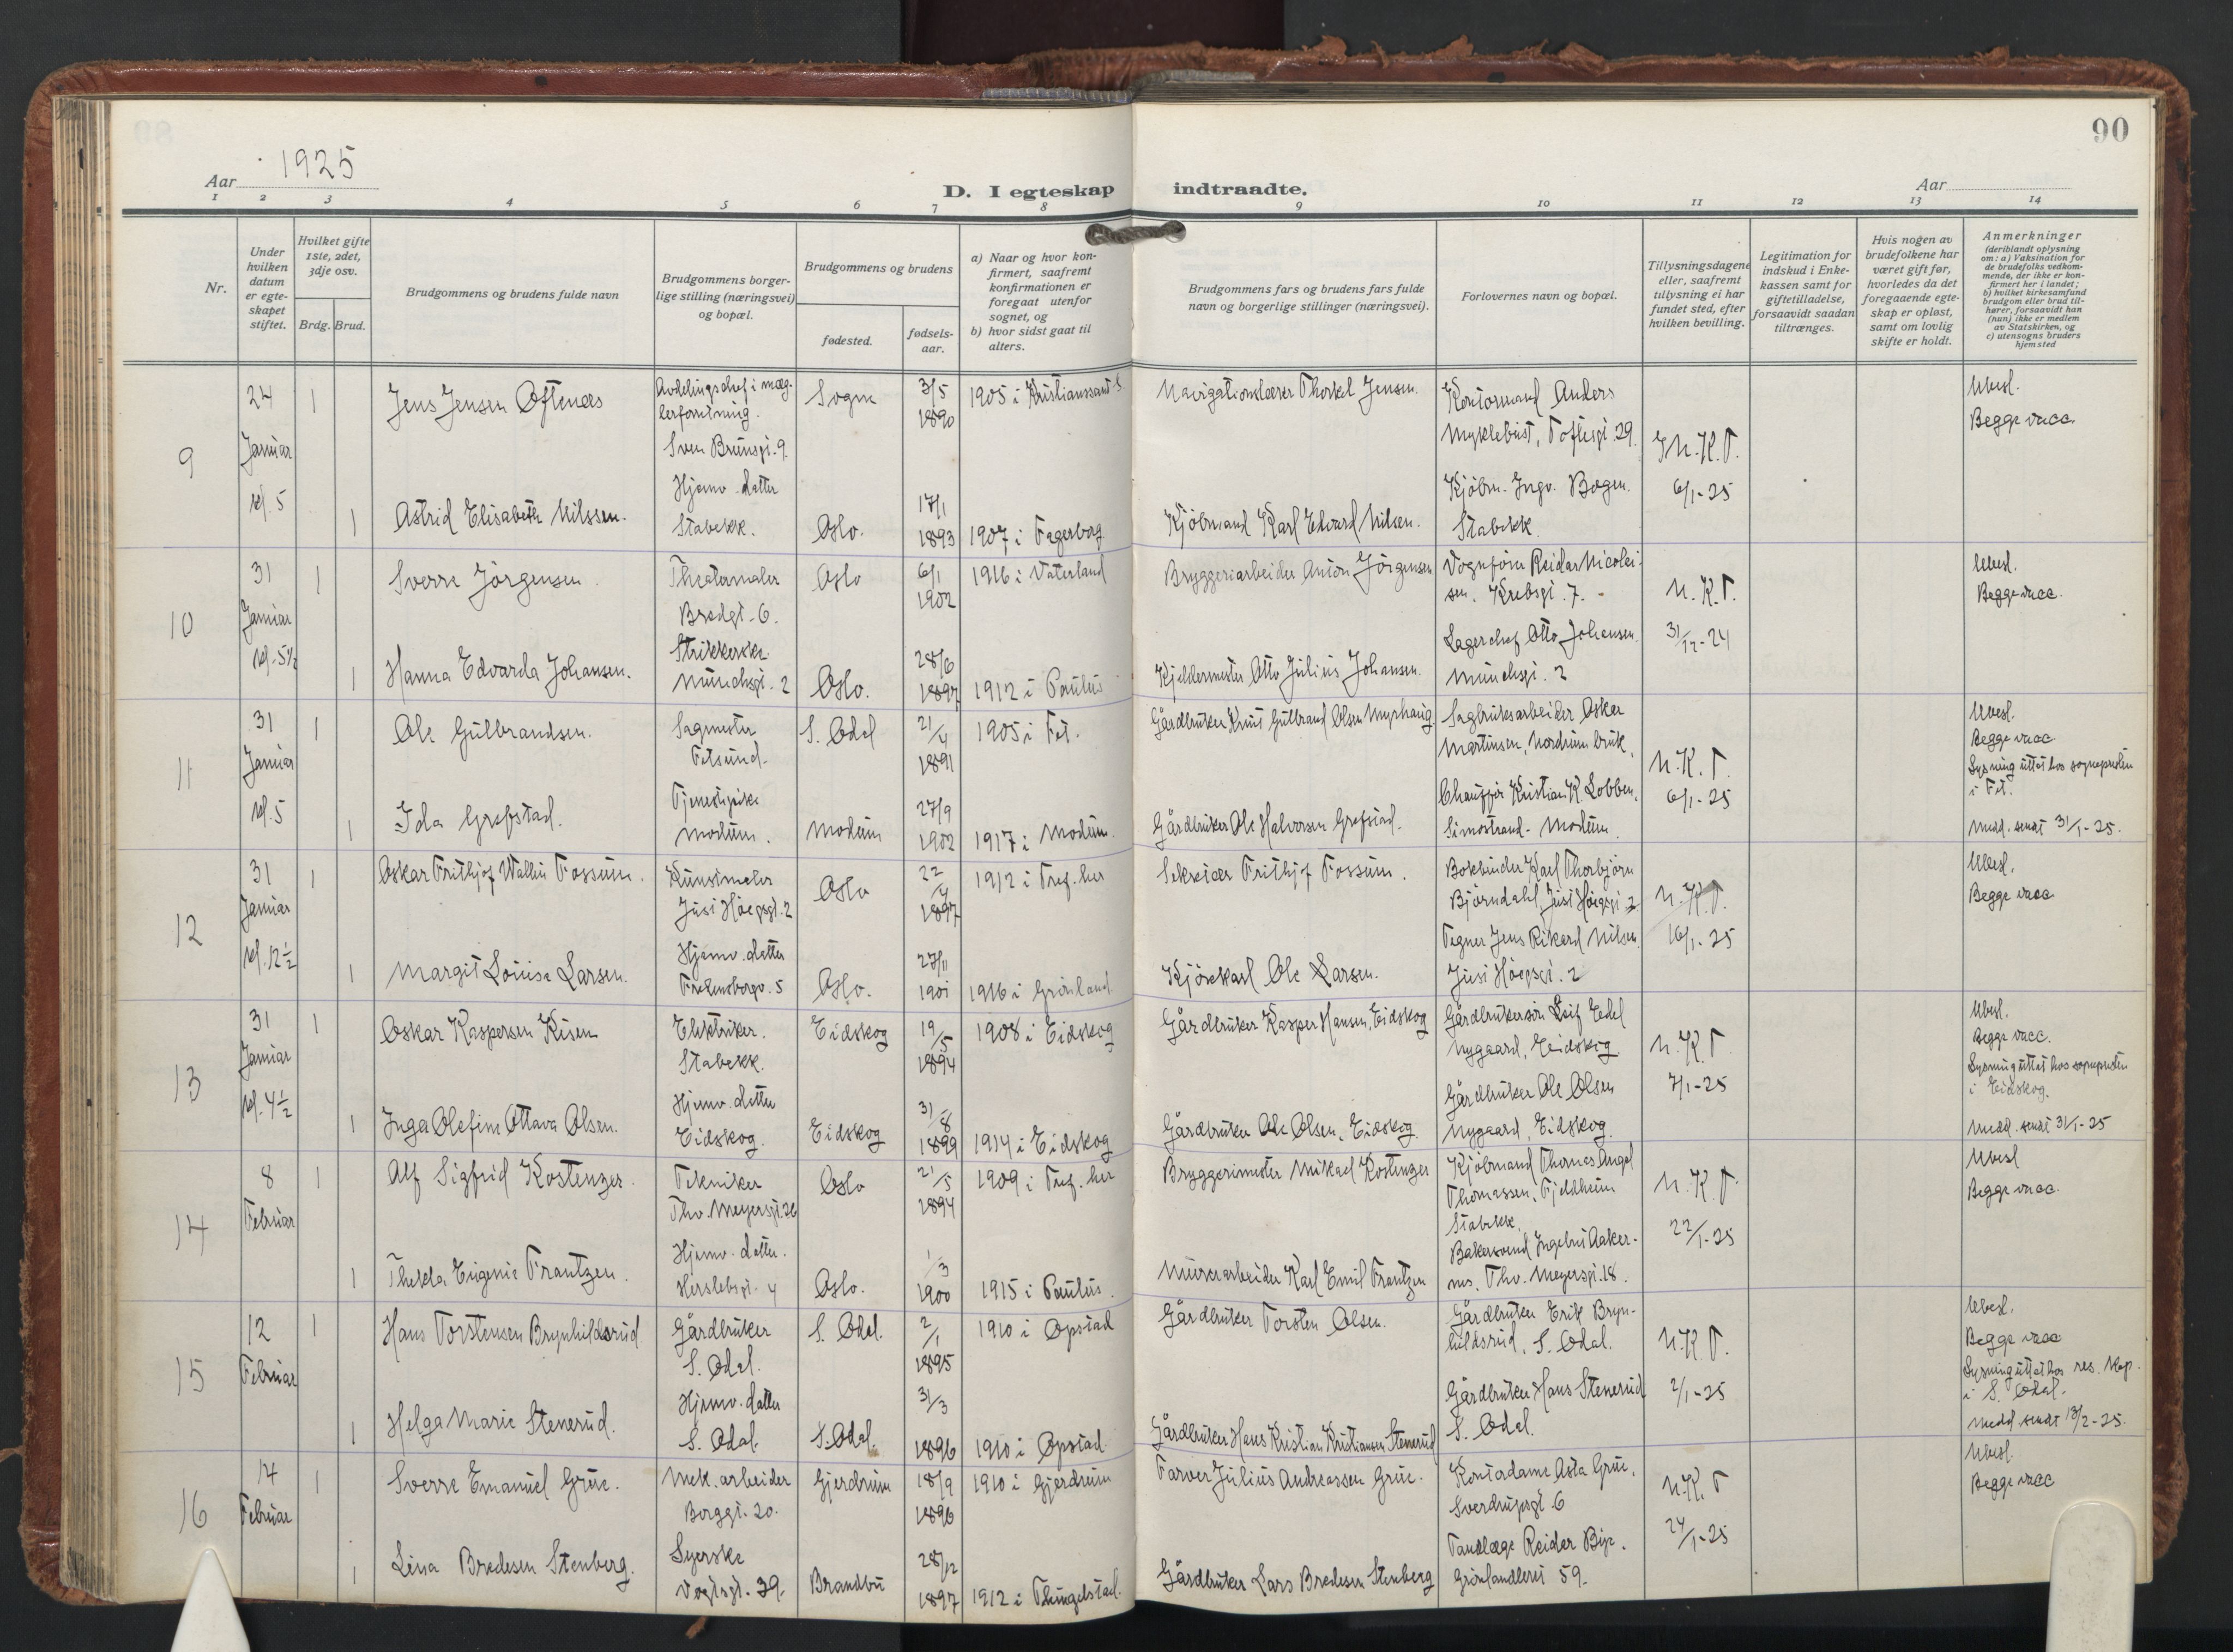 90
Aar 1925
D. I egteskap indtraadte.
Aar
1 2 3 4 5 6 7 8 9 10 11 12 13 14
Nr.
Under hvilken datum er egteskapet stiftet.
Hvilket gifte 1ste, 2det, 3dje osv.
Brdg. Brud.
Brudgommens og brudens fulde navn
Brudgommens borgerlige stilling (næringsvei) og bopæl.
Brudgommens og brudens
fødested.
fødselsaar.
a) Naar og hvor konfirmert, saafremt konfirmationen er foregaat utenfor sognet, og
b) hvor sidst gaat til alters.
Brudgommens fars og brudens fars fulde navn og borgerlige stillinger (næringsvei).
Forlovernes navn og bopæl.
Tillysningsdagene eller, saafremt tillysning ei har fundet sted, efter hvilken bevilling.
Legitimation for indskud i Enkekassen samt for giftetilladelse, forsaavidt saadan tiltrænges.
Hvis nogen av brudefolkene har været gift før, hvorledes da det foregaaende egteskap er opløst, samt om lovlig skifte er holdt.
Anmerkninger
(deriblandt oplysning om: a) Vaksination for de brudefolks vedkommende, der ikke er konfirmert her i landet; b) hvilket kirkesamfund brudgom eller brud tilhører, forsaavidt han (hun) ikke er medlem av Statskirken, og c) utensogns bruders hjemsted
9
24 Januar kl. 5
1
Jens Jensen Oftenæs
Avdelingschef i mæglerforretning.
Sven Brunsgt. 9
Sogne
3/5 1890
1905 i Kristianssand S.
Navigationslærer Thorkel Jensen.
Kontormand Anders
Myklebust, Toftesgt. 29.
N.K.T.
6/1-25
Ubesl.
Begge vacc.
1
Astrid Elisabeth Nilssen.
Hjemv. datter
Stabekk.
Oslo.
17/1 1893
1907 i Fagerborg
Kjöbmand Karl Edvard Nilsen.
Kjöbm. Ingv. Bogen.
Stabekk
10
31 Januar kl. 5½
1
Sverre Jörgensen
Theatermaler
Bredgt. 6.
Oslo
6/1 1902
1916 i Vaterland
Bryggeriarbeider Anton Jörgensen
Vognfører Reidar Nicolaisen. Krebsgt. 7.
N.K.T.
31/12-24
Ubesl.
Begge vacc.
1
Hanna Edvarda Johansen.
Strikkerske
Munchsgt. 2
Oslo.
28/6 1897
1912 i Paulus
Kjeldermester Otto Julius Johansen.
Lagerchef Otto Johansen.
Munchsgt. 2
11
31 Januar kl. 5
1
Ole Gulbrandsen.
Sagmester
Fetsund.
S. Odal
21/4 1891
1905 i Fet.
Gårdbruker Knut Gulbrand Olsen Myrhaug.
Sagbruksarbeider Oskar
Martinsen, Nordrum bruk,
N.K.T.
6/1-25
Ubesl.
Begge vacc
Lysning uttat hos sogneprsten i Fet.
1
Ida Grefstad.
Tjenestepike
Modum.
Modum
27/9 1902
1917 i Modum.
Gårdbruker Ole Halvorsen Grefstad.
Chauffør Kristian K. Lobben,
Simostrand - Modum.
Medd. sendt 31/1-25.
12
31 Januar kl. 12½
1
Oskar Frithjof Wallin Fossum.
Kunstmaler
Just Höegsgt. 2
Oslo
22/4 1897
1912 i Tref. her
Sekretær Frithjof Fossum.
Bokbinder Karl Thorbjörn
Björndahl, Just Höegsgt 2
N.K.T.
16/1-25
Ubesl.
Begge vacc
1
Margit Louise Larsen.
Hjemv. datter
Oslo.
27/11 1901
1916 i Grönland
Kjörekarl Ole Larsen.
Tegner Jens Rikard Nilsen.
Just Höegsgt. 2
13
31 Januar kl. 4½
1
Oskar Kaspersen Kisen
Elektriker.
Stabekk.
Eidskog
19/5 1894
1908 i Eidskog
Gårdbruker Kasper Hansen, Eidskog
Gårdbrukersön Leif Edel
Nygaard, Eidskog.
N.K.T.
7/1-25
Ubesl.
Begge vacc.
Lysning uttat hos sogneprsten i Eidskog.
1
Inga Olefine Ottava Olsen.
Hjemv. datter
Eidskog.
Eidskog
31/8 1899
1914 i Eidskog
Gårdbruker Ole Olsen, Eidskog.
Gårdbruker Ole Olsen
Nygaard, Eidskog.
Medd. sendt 31/1-25
14
8 Februar
1
Alf Sigfrid Kostenzer.
Tekniker
Thv. Meyersgt. 26
Oslo
21/5 1894
1909 i Tref. her
Bryggerimester Mikael Kostenzer
Kjöbmand Thomas Angel
Thomassen, Fjeldheim
Stabekk.
N.K.T.
22/1-25
Ubesl
Begge vacc.
1
Thekla Eugenie Frantzen.
Hjemv. datter.
Herslebsgt. 4
Oslo.
1/3 1900
1915 i Paulus.
Murerarbeider Karl Emil Frantzen
Bakersvend Ingebret Aakernes. Thv. Meyersgt. 18.
15
12 Februar
1
Hans Torstensen Brynhildsrud
Gårdbruker
S. Odal.
S. Odal.
2/1 1895
1910 i Opstad
Gårdbruker Torsten Olsen.
Gårdbruker Erik Brynhildsrud, S. Odal.
N.K.T.
2/1-25
Ubesl.
Begge vacc
Lysning uttat hos res. kap. i S. Odal.
1
Helga Marie Stenerud.
Hjemv. datter
S. Odal.
S. Odal.
31/3 1896
1910 i Opstad.
Gårdbruker Hans Kristian Kristiansen Stenerud
Gårdbruker Hans Stenerud
S. Odal.
Medd sendt 13/2-25.
16
14 Februar
1
Sverre Emanuel Grue.
Mek. arbeider
Borggt. 20.
Gjerdrum
18/9 1896
1910 i Gjerdrum
Farver Julius Andreassen Grue.
Kontordame Asta Grue,
Sverdrupsgt. 6
N.K.T
24/1-25
Ubesl.
Begge vacc
1
Lina Bredesen Stenberg.
Syerske
Vogtsgt. 39.
Brandbu
28/12 1897
1912 i Thingelstad.
Gårdbruker Lars Bredesen Stenberg
Tandlæge Reidar Bye.
Grönlandsleret 59.